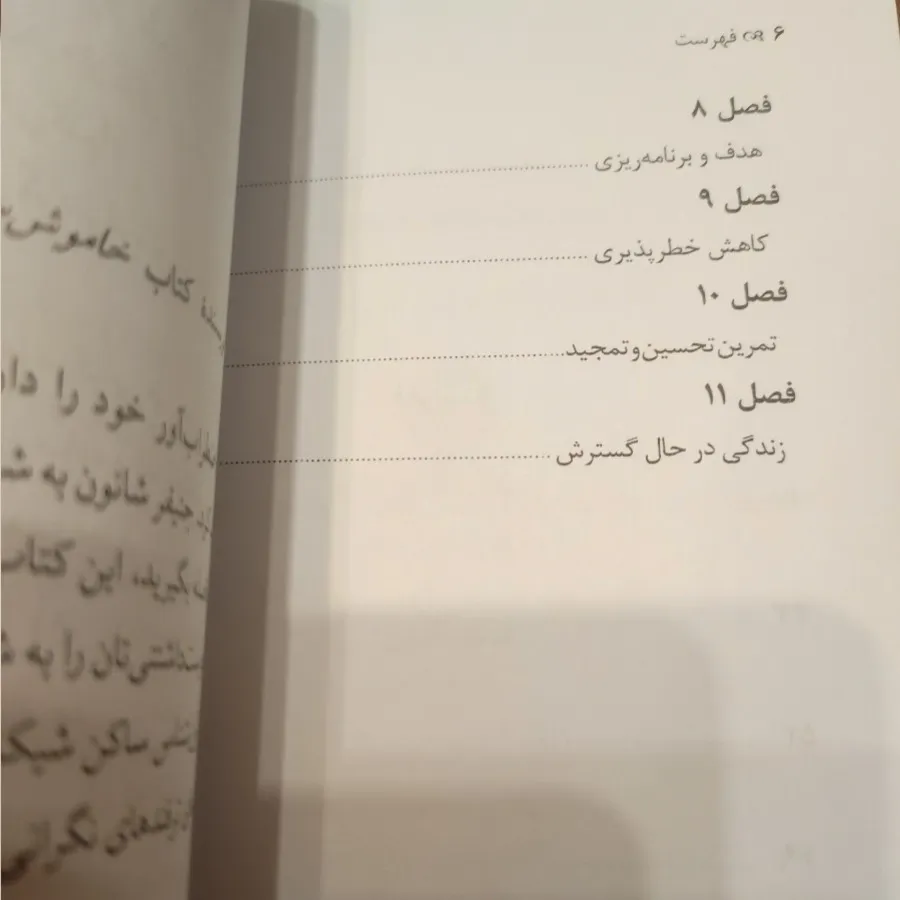 ۶ فهرست
فصل ۸
هدف و برنامه‌ریزی
فصل ۹
کاهش خطرپذیری
فصل ۱۰
تمرین تحسین و تمجید
فصل ۱۱
زندگی در حال گسترش
کتاب خاموشی
خود را
جنیفر شانون به
بگیرید. این کتاب
را به
ساکن
نگرانی